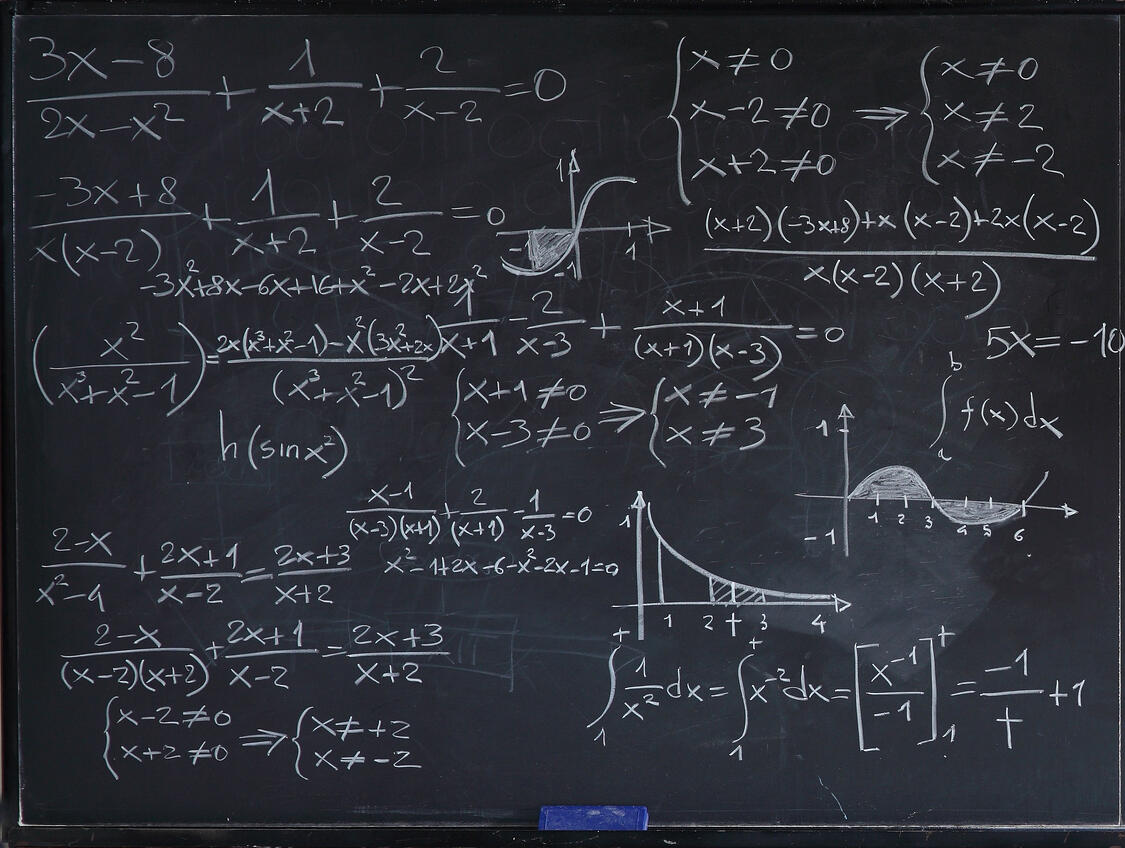 (3x-8)/(2x-x²) + 1/(x+2) + 2/(x-2) = 0
{ x ≠ 0
x-2 ≠ 0 ⇒
x+2 ≠ 0
{ x ≠ 0
x ≠ 2
x ≠ -2
(-3x+8)/(x(x-2)) + 1/(x+2) + 2/(x-2) = 0
1
-1
1
((x+2)(-3x+8)+x(x-2)+2x(x-2))/(x(x-2)(x+2))
-3x²+8x-6x+16+x²-2x+2x²
(x²/(x³+x²-1)) = (2x(x³+x²-1)-x²(3x²+2x))/(x³+x²-1)²
1/(x+1) - 2/(x-3) + (x+1)/((x+1)(x-3)) = 0
5x = -10
{ x+1 ≠ 0
x-3 ≠ 0 ⇒
{ x ≠ -1
x ≠ 3
∫ₐᵇ f(x)dx
h(sinx²)
1
-1
1 2 3 4 5 6
(x-1)/((x-3)(x+1)) + 2/(x+1) - 1/(x-3) = 0
x²-1+2x-6-x²-2x-1=0
1
1 2 t 3 4
(2-x)/(x²-4) + (2x+1)/(x-2) = (2x+3)/(x+2)
(2-x)/((x-2)(x+2)) + (2x+1)/(x-2) = (2x+3)/(x+2)
{ x-2 ≠ 0
x+2 ≠ 0 ⇒
{ x ≠ +2
x ≠ -2
∫₁ᵗ 1/x² dx = ∫₁ᵗ x⁻² dx = [x⁻¹/-1]₁ᵗ = -1/t + 1